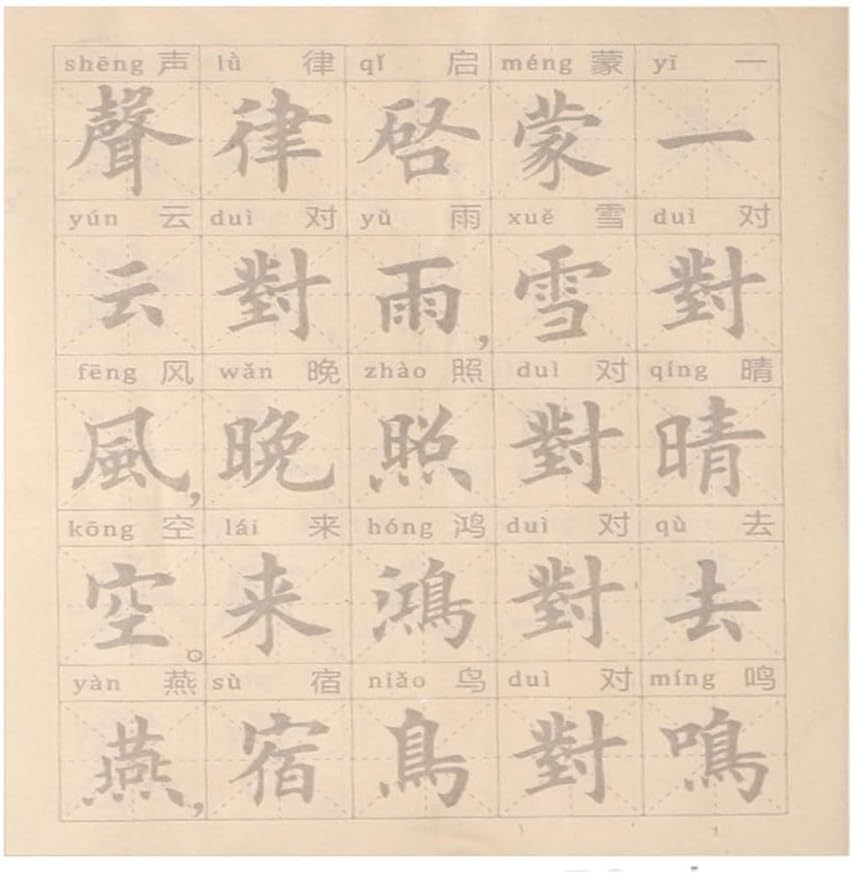 shēng 声 lǜ 律 qǐ 启 méng 蒙 yī 一
聲律啓蒙一
yún 云 duì 对 yǔ 雨 xuě 雪 duì 对
云對雨,雪對
fēng 风 wǎn 晚 zhào 照 duì 对 qíng 晴
風,晚照對晴
kōng 空 lái 来 hóng 鸿 duì 对 qù 去
空。来鴻對去
yàn 燕 sù 宿 niǎo 鸟 duì 对 míng 鸣
燕,宿鳥對鳴